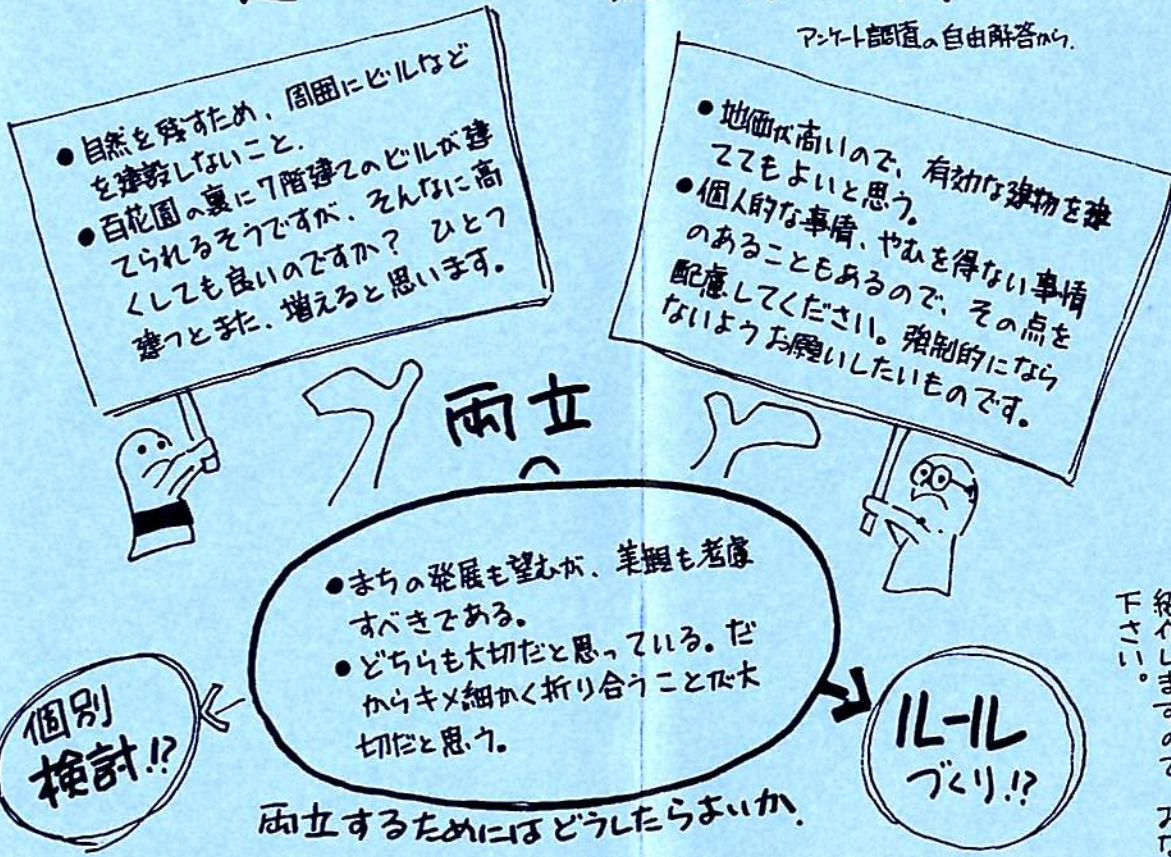 アンケート調査の自由解答から.
● 自然を残すため、周囲にビルなど
を建設しないこと.
● 百花園の裏に7階建てのビルが建
てられるそうですが、そんなに高
くしても良いのですか? ひとつ
建つとまた、増えると思います。
● 地価が高いので、有効な建物を建
ててもよいと思う。
● 個人的な事情、やむを得ない事情
のあることもあるので、その点を
配慮してください。強制的になら
ないようお願いしたいものです。
両立
● まちの発展も望むが、美観も考慮
すべきである。
● どちらも大切だと思っている。だ
からキメ細かく折り合うことが大
切だと思う。
個別
検討!?
ルール
づくり!?
両立するためにはどうしたらよいか.
しますので
下さい。